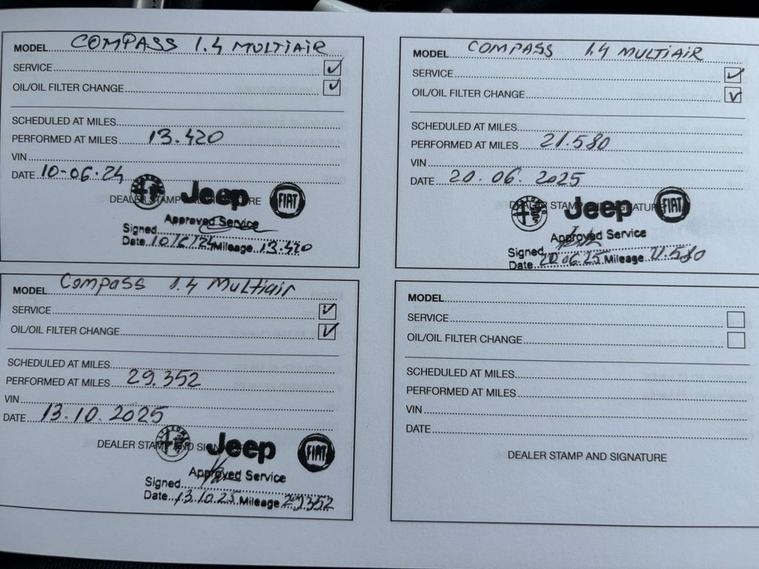 MODEL COMPASS 1.4 MULTIAIR
SERVICE
OIL/OIL FILTER CHANGE
SCHEDULED AT MILES
PERFORMED AT MILES 13.420
VIN
DATE 10-06-24
DEALER STAMP
Jeep
FIAT
Approved Service
Signed
Date 10/6/24 Mileage 13.420
MODEL COMPASS 1.4 MULTIAIR
SERVICE
OIL/OIL FILTER CHANGE
SCHEDULED AT MILES
PERFORMED AT MILES 21.580
VIN
DATE 20.06.2025
DEALER STAMP
Jeep
FIAT
Approved Service
Signed
Date 20.06.25 Mileage 21.580
MODEL Compass 1.4 Multiair
SERVICE
OIL/OIL FILTER CHANGE
SCHEDULED AT MILES
PERFORMED AT MILES 29.352
VIN
DATE 13.10.2025
DEALER STAMP AND
Jeep
FIAT
Approved Service
Signed
Date 13.10.25 Mileage 29352
MODEL
SERVICE
OIL/OIL FILTER CHANGE
SCHEDULED AT MILES
PERFORMED AT MILES
VIN
DATE
DEALER STAMP AND SIGNATURE